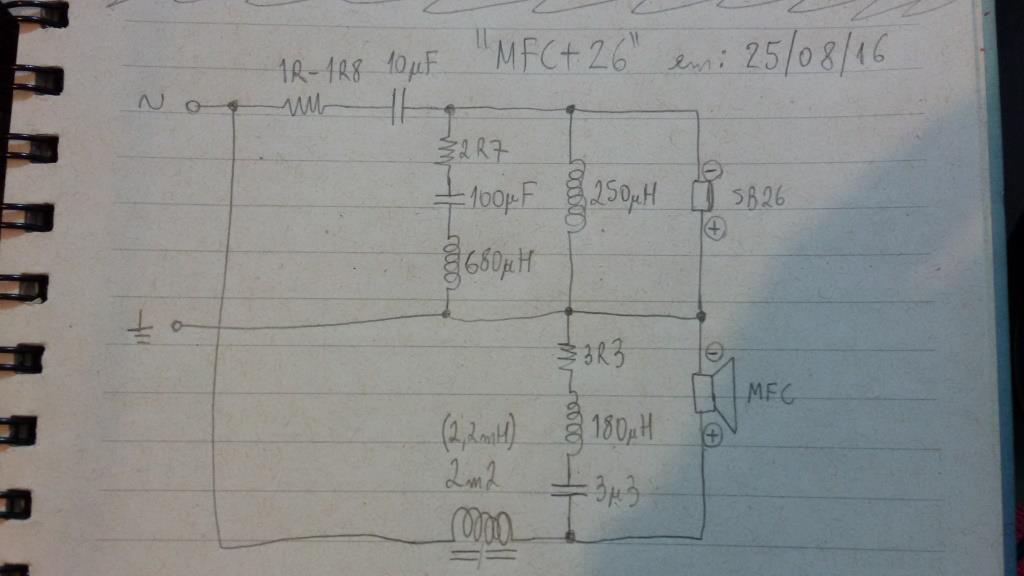 "MFC+26" em: 25/08/16
1R-1R8 10µF
~
2R7
100µF
250µH
⊖
SB26
⊕
680µH
3R3
⊖
MFC
180µH
⊕
(2,2mH)
2m2
3µ3